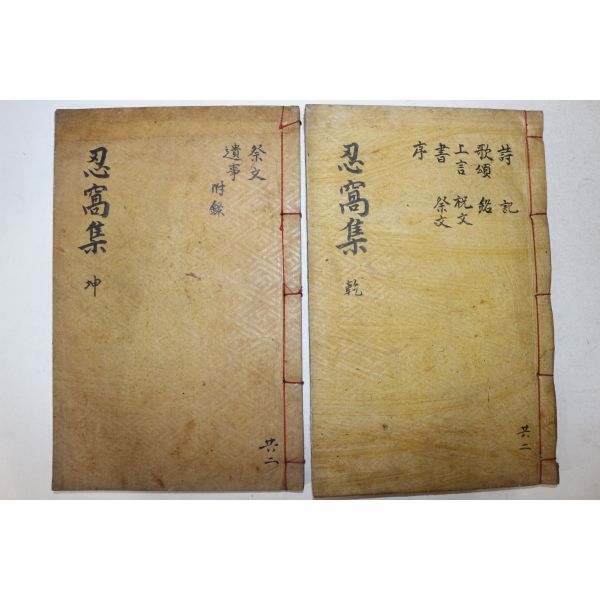 忍窩集 乾
詩 記
歌頌 銘
上言 祝文
書 祭文
序
共二
忍窩集 坤
祭文
遺事
附錄
共二